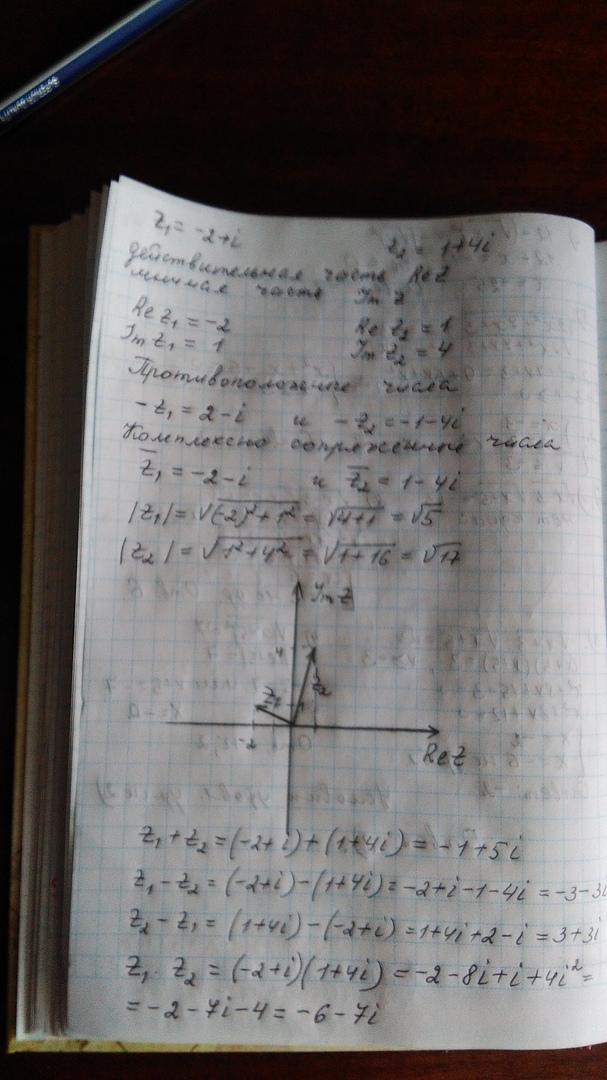 z₁ = -2+i z₂ = 1+4i
действительная часть Re z
мнимая часть Im z
Re z₁ = -2 Re z₂ = 1
Im z₁ = 1 Im z₂ = 4
Противоположные числа
-z₁ = 2-i и -z₂ = -1-4i
Комплексно сопряженные числа
z̅₁ = -2-i и z̅₂ = 1-4i
|z₁| = √((-2)²+1²) = √(4+1) = √5
|z₂| = √(1²+4²) = √(1+16) = √17
Im z
4
z₂
z₁
1
-2
Re z
z₁ + z₂ = (-2+i)+(1+4i) = -1+5i
z₁ - z₂ = (-2+i)-(1+4i) = -2+i-1-4i = -3-3i
z₂ - z₁ = (1+4i)-(-2+i) = 1+4i+2-i = 3+3i
z₁ · z₂ = (-2+i)(1+4i) = -2-8i+i+4i² =
= -2-7i-4 = -6-7i